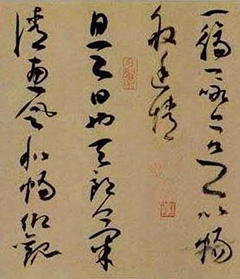 一觴一詠亦足以暢
敘幽情
是日也天朗氣
清惠風和暢仰觀